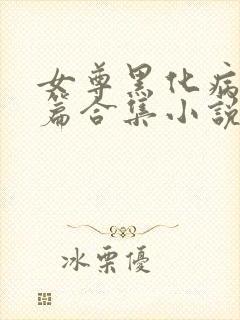 女尊黑化病
篇合集小說
冰栗優